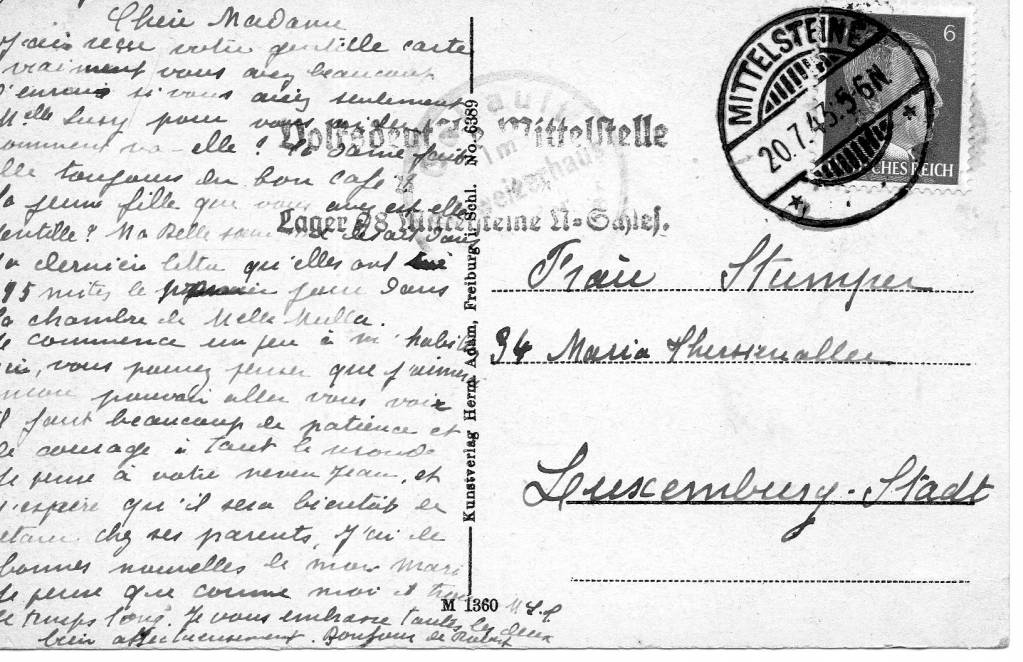 Chère Madame
J'ais reçu votre gentille carte
vraiment vous avez beaucoup
d'ennuis si vous aviez seulement
Melle Lucy pour vous
comment va-elle?
elle toujours du bon café
la jeune fille que vous avez est elle
gentille? Ma Belle
la dernier lettre qu'elles ont
95 mites le jour dans
la chambre de Melle Mulla.
Je commence un peu à m'habitu
ici, vous pouvez penser que j'aimer
pouvoir aller vous voir
il faut beaucoup de patience et
de courage à tout le monde
Je pense à votre neveu Jean, et
j'espère qu'il sera bientôt de
retour chez ses parents, J'ai de
bonnes nouvelles de mon mari
Je pense que comme moi il trouve
le temps long. Je vous embrasse toutes les deux
bien affectueusement. Bonjour de Robert
Volksdeutsche Mittelstelle
Lager 98 Mittelsteine N-Schles.
im
Kunstverlag Herm. Adam, Freiburg i. Schl. No. 6389
M 1360
MITTELSTEINE
20.7.43.5-6N.
6
DEUTSCHES REICH
Frau Stumper
94 Maria Theresienallee
Luxemburg-Stadt